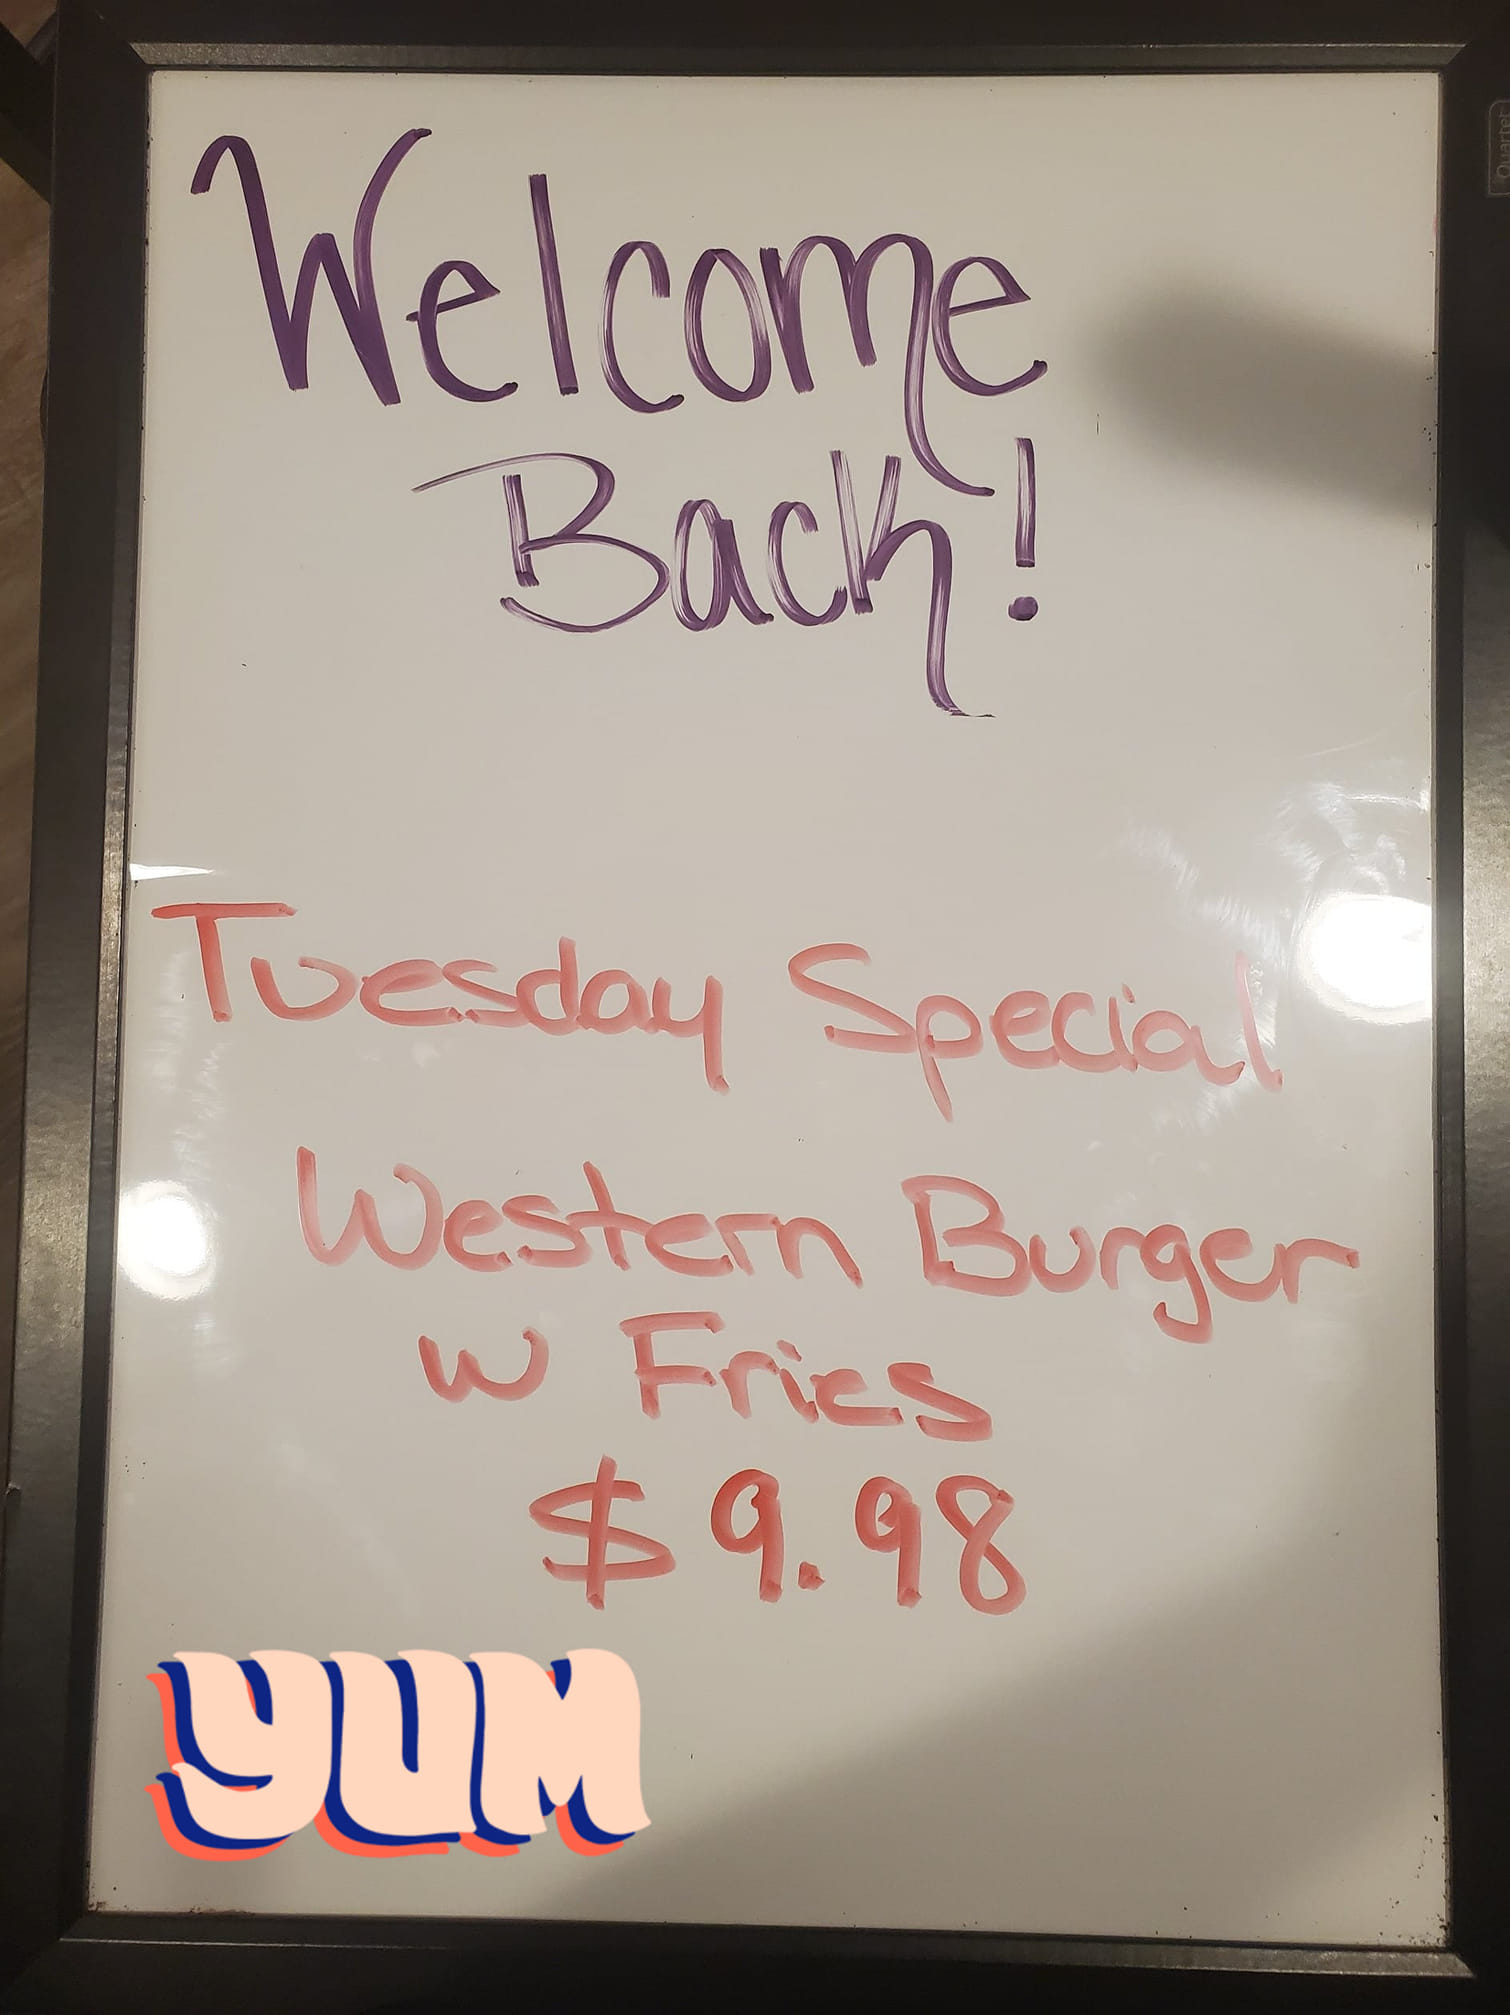 Quartet
Welcome
Back!
Tuesday Special
Western Burger
w Fries
$9.98
YUM